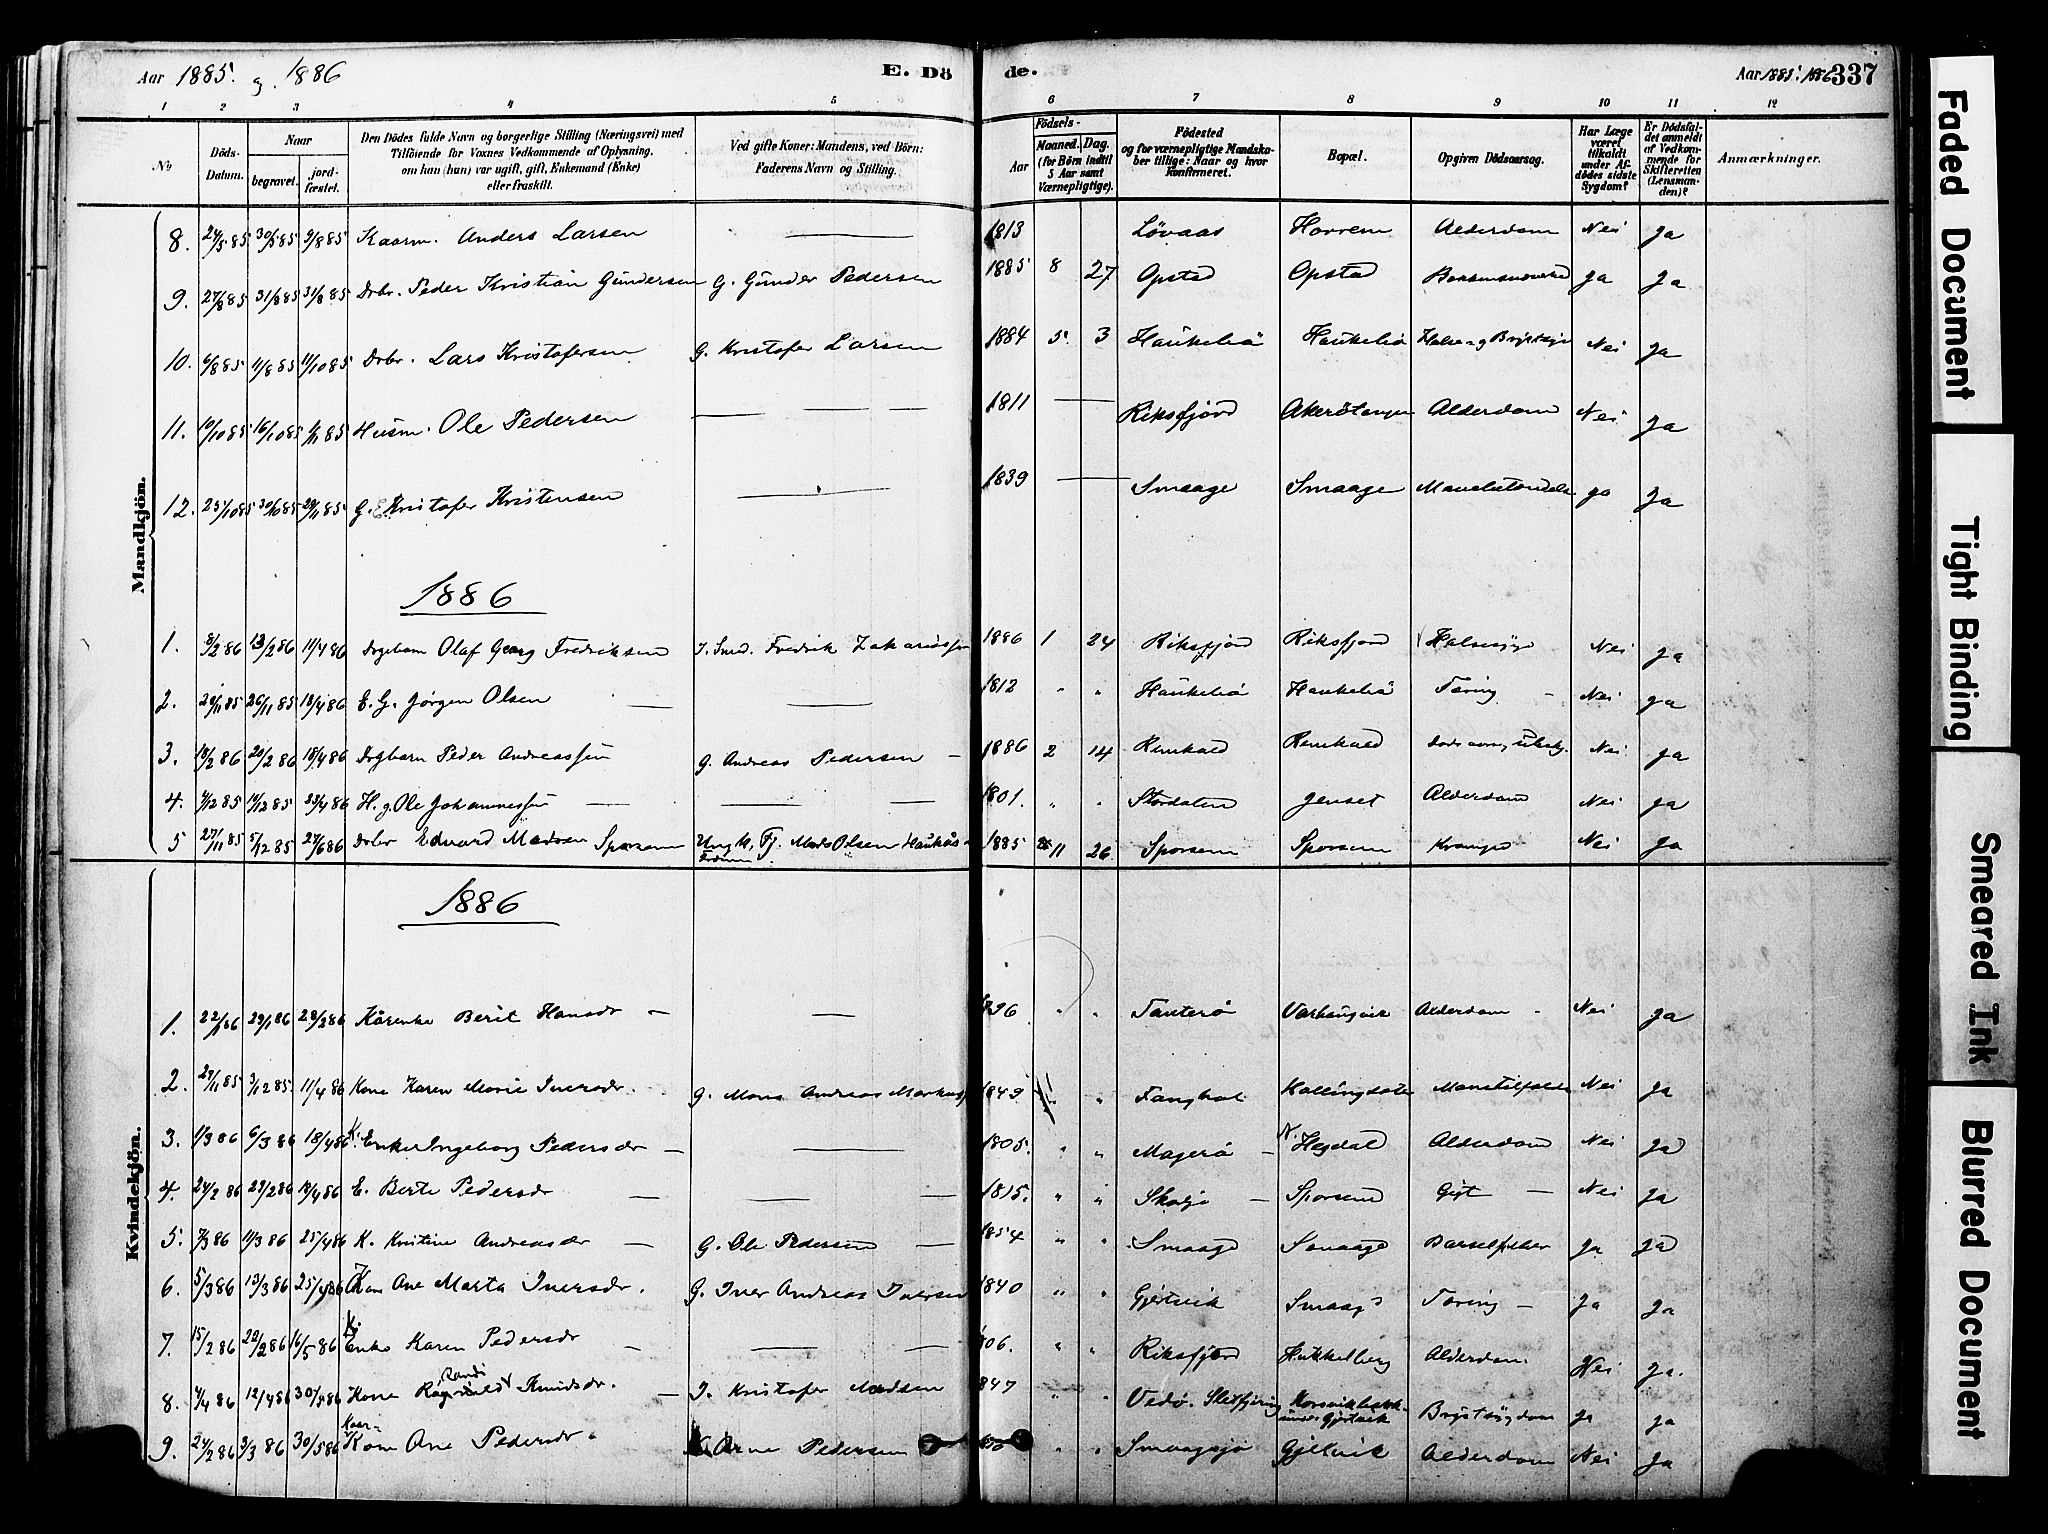 Aar 1885. og 1886
E. Dö
de.
Aar 1885. 1886 337
1 2 3 4 5 6 7 8 9 10 11 12
No
Döds-Datum.
Naar
begravet.
jord-fæstet.
Den Dödes fulde Navn og borgerlige Stilling (Næringsvei) med
Tilföiende for Voxnes Vedkommende af Oplysning,
om han (hun) var ugift, gift, Enkemand (Enke)
eller fraskilt.
Ved gifte Koner: Mandens, ved Börn:
Faderens Navn og Stilling.
Aar
Födsels-
Maaned. Dag.
(for Börn indtil
5 Aar samt
Værnepligtige).
Födested
og for værnepligtige Mandska-
ber tillige: Naar og hvor
Konfirmeret.
Bopæl.
Opgiven Dödsaarsag.
Har Læge
været
tilkaldt
under Af-
dödes sidste
Sygdom?
Er Dödsfal-
det anmeldt
af Vedkom-
mende for
Skifteretten
(Lensman-
den)?
Anmærkninger.
Mandkjön.
8. 24/5 85 30/5 85 9/8 85 Kaarm. Anders Larsen — 1813 Løvaas Horrem Alderdom Nei Ja
9. 27/8 85 31/8 85 31/8 85 Drbr. Peder Kristian Gundersen G. Gunder Pedersen 1885 8 27 Opstad Opstad Ja Ja
10. 6/8 85 11/8 85 11/10 85 Drbr. Lars Kristofersen G. Kristofer Larsen 1884 5 3 Haukebø Haukebø Halse- og Brystsyge Nei Ja
11. 10/10 85 16/10 85 1/11 85 Husm. Ole Pedersen — — — 1811 — Riksfjord Akerøtangen Alderdom Nei Ja
12. 25/10 85 30/10 85 29/11 85 G. Kristofer Kristensen — 1839 — Smaage Smaage Ja Ja
1886
1. 8/2 86 13/2 86 11/4 86 Dogbarn Olaf Georg Fredriksen I. Smed. Fredrik Zakariassen 1886 1 24 Riksfjord Riksfjord Halsesyge Nei Ja
2. 20/11 85 26/11 85 18/4 86 E. G. Jørgen Olsen — — 1812 " " Haukebø Haukebø Tæring — Nei Ja
3. 18/2 86 20/2 86 18/4 86 Dogbarn Peder Andreassen G. Andreas Pedersen — 1886 2 14 Remkald Remkald Nei Ja
4. 9/12 85 14/12 85 23/4 86 H. g. Ole Johannessen — — — 1801. " " Stordalen Jenset Alderdom Nei Ja
5 27/11 85 5/12 85 27/6 86 Drbr Edvard Madsen Sporsem Ungk. Fj. Mads Olsen Haukås- 1885 11 26 Sporsem Sporsem Krampe Nei Ja
Kvindekjön.
1886
1. 22/1 86 29/1 86 28/3 86 Kårenke Berit Hansdr — — 1796 " " Tauterø Varhaugvik Alderdom - Nei Ja
2. 27/11 85 3/12 85 11/4 86 Kone Karen Marie Iversdr. G. Mons Andreas Markuss 1849 " Fanghol Mavetilfælde Nei Ja
3. 1/3 86 6/3 86 18/4 86 K. Enke Ingeborg Pedersdr — — 1805. " " Magerø — N. Hegdal Alderdom Nei Ja
4. 24/2 86 27/2 86 18/4 86 E. Berte Pedersdr — — — 1815. " " Skotjø — Sporsem Gigt — Nei Ja
5. 7/3 86 11/3 86 25/4 86 K. Kristine Andreasdr — G. Ole Pedersen — 1854 " " Smaage Smaage Barselfeber Ja Ja
6. 5/3 86 13/3 86 25/4 86 Kone Ane Marta Iversdr. G. Iver Andreas Iversen 1840 " " Gjertvik Smaage Tæring — Ja Ja
7. 15/2 86 22/2 86 16/5 86 K. Enke Karen Pedersdr — — — 806. " " Riksfjord Hukkelberg Alderdom. Nei Ja.
8. 4/4 86 12/4 86 30/5 86 Kone Ragnild Randi Knudsdr. — I. Kristofer Madsen 847 " " Vedø. Sletfjering Brystsygdom Ja Ja
9. 24/2 86 3/3 86 30/5 86 Kaar- Kone Ane Pedersdr. K. Arne Pedersen " " Smaagsjø Gjetvik Alderdom Nei Ja
Faded Document
Tight Binding
Smeared Ink
Blurred Document